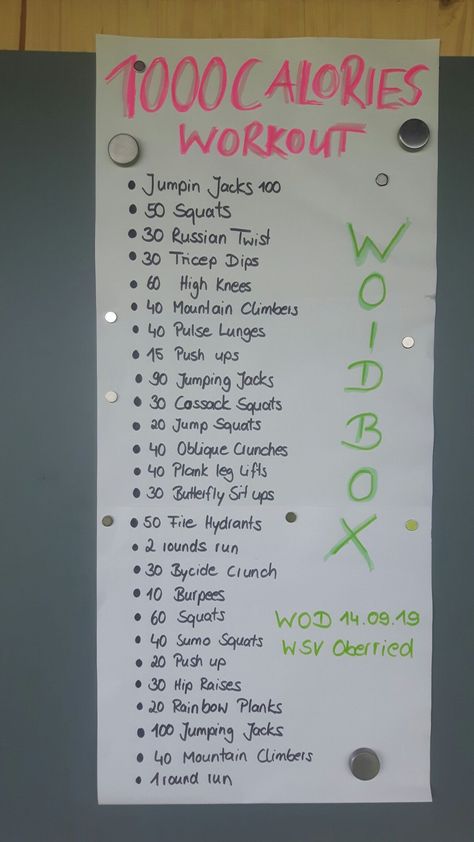 1000 CALORIES
WORKOUT
• Jumpin Jacks 100
• 50 Squats
• 30 Russian Twist
• 30 Tricep Dips
• 60 High Knees
• 40 Mountain Climbers
• 40 Pulse Lunges
• 15 Push ups
• 90 Jumping Jacks
• 30 Cossack Squats
• 20 Jump Squats
• 40 Oblique Crunches
• 40 Plank leg Lifts
• 30 Butterfly Sit ups
• 50 Fire Hydrants
• 2 rounds run
• 30 Bycicle Crunch
• 10 Burpees
• 60 Squats
• 40 Sumo Squats
• 20 Push up
• 30 Hip Raises
• 20 Rainbow Planks
• 100 Jumping Jacks
• 40 Mountain Climbers
• 1 round run
WOIDBOX
WOD 14.09.19
WSV Oberried